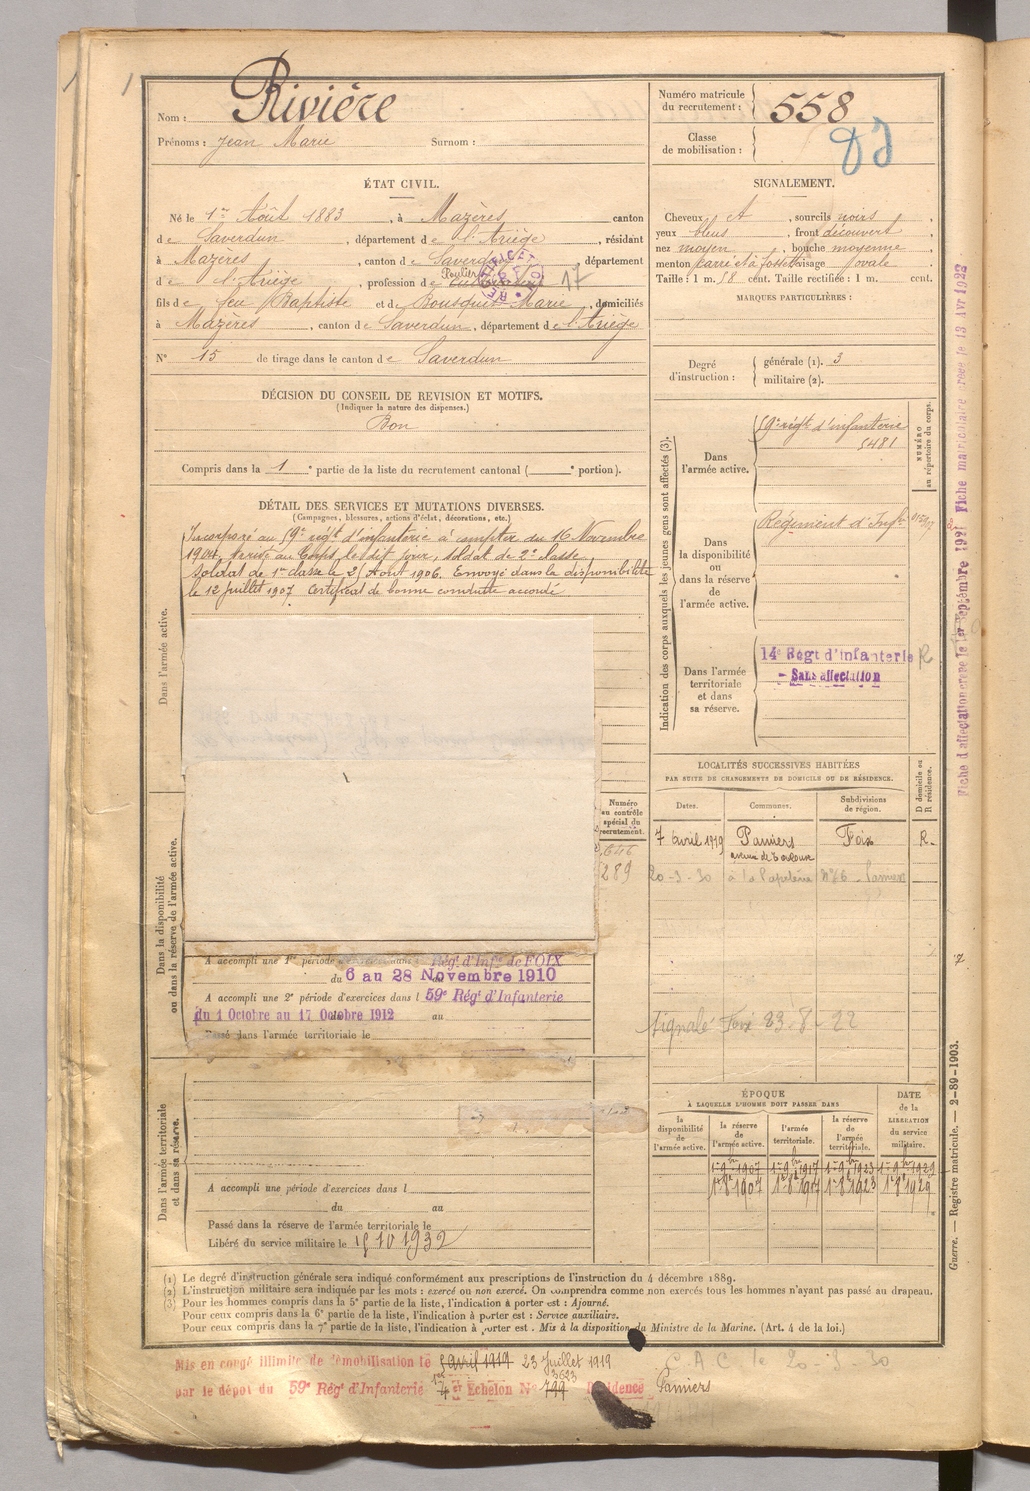 Nom : Rivière
Prénoms : Jean Marie Surnom :
Numéro matricule du recrutement : 558
Classe de mobilisation :
ÉTAT CIVIL.
Né le 1er Août 1883, à Mazères canton
de Saverdun, département de l'Ariège, résidant
à Mazères, canton de Saverdun, département
de l'Ariège, profession de 17
fils de feu Baptiste et de Bousquet Marie, domiciliés
à Mazères, canton de Saverdun, département de l'Ariège
N° 15 de tirage dans le canton de Saverdun
SIGNALEMENT.
Cheveux , sourcils noirs,
yeux bleus, front découvert,
nez moyen, bouche moyenne
menton carré et à fossette visage ovale.
Taille : 1 m. 58 cent. Taille rectifiée : 1 m. cent.
MARQUES PARTICULIÈRES :
Degré d'instruction : générale (1). 3
militaire (2).
DÉCISION DU CONSEIL DE REVISION ET MOTIFS.
(Indiquer la nature des dispenses.)
Bon
Compris dans la 1e partie de la liste du recrutement cantonal ( e portion).
DÉTAIL DES SERVICES ET MUTATIONS DIVERSES.
(Campagnes, blessures, actions d'éclat, décorations, etc.)
Dans l'armée active.
Incorporé au 59e régt d'infanterie à compter du 16 Novembre
1904, arrivé au Corps, le dit jour, soldat de 2e classe
Soldat de 1re classe le 25 Aout 1906. Envoyé dans la disponibilité
le 12 juillet 1907 Certificat de bonne conduite accordé
Dans la disponibilité ou dans la réserve de l'armée active.
Numéro au contrôle spécial du recrutement.
289
A accompli une 1re période Régt d'Infie de FOIX
du 6 au 28 Novembre 1910
A accompli une 2e période d'exercices dans l 59e Régt d'Infanterie
du 1 Octobre au 17 Octobre 1912 au
Passé dans l'armée territoriale le
Dans l'armée territoriale et dans sa réserve.
A accompli une période d'exercices dans l
du au
Passé dans la réserve de l'armée territoriale le
Libéré du service militaire le 15 10 1932
Indication des corps auxquels les jeunes gens sont affectés (3).
NUMÉRO au répertoire du corps.
Dans l'armée active.
59e régt d'infanterie
5481
Dans la disponibilité ou dans la réserve de l'armée active.
Régiment d'Infie
Dans l'armée territoriale et dans sa réserve.
14e Régt d'infanterie
- Sans affectation
LOCALITÉS SUCCESSIVES HABITÉES
PAR SUITE DE CHANGEMENTS DE DOMICILE OU DE RÉSIDENCE.
Dates. Communes. Subdivisions de région. D domicile ou R résidence.
7 avril 1919 Pamiers Foix R.
avenue de Toulouse
20-3-30 à la Papeterie N°6 Pamiers
Signalé Foix 23-8-22
ÉPOQUE
À LAQUELLE L'HOMME DOIT PASSER DANS
la disponibilité de l'armée active. la réserve de l'armée active. l'armée territoriale. la réserve de l'armée territoriale. DATE de la LIBÉRATION du service militaire.
1er 9bre 1907 1er 9bre 1917 1er 9bre 1923 1er 9bre 1929
1er 8bre 1907 1er 8bre 1917 1er 8bre 1923 1er 8bre 1929
(1) Le degré d'instruction générale sera indiqué conformément aux prescriptions de l'instruction du 4 décembre 1889.
(2) L'instruction militaire sera indiquée par les mots : exercé ou non exercé. On comprendra comme non exercés tous les hommes n'ayant pas passé au drapeau.
(3) Pour les hommes compris dans la 5e partie de la liste, l'indication à porter est : Ajourné.
Pour ceux compris dans la 6e partie de la liste, l'indication à porter est : Service auxiliaire.
Pour ceux compris dans la 7e partie de la liste, l'indication à porter est : Mis à la disposition du Ministre de la Marine. (Art. 4 de la loi.)
Mis en congé illimité de démobilisation le 5 avril 1919 23 Juillet 1919
3623
par le dépôt du 59e Rég't d'Infanterie Echelon N° 799 Résidence Pamiers
C.A.C. le 20-3-30
Guerre. — Registre matricule. — 2-89-1903.
Fiche d'affectation créée le 1er Septembre 1921 Fiche matriculaire créée le 13 Avr 1922